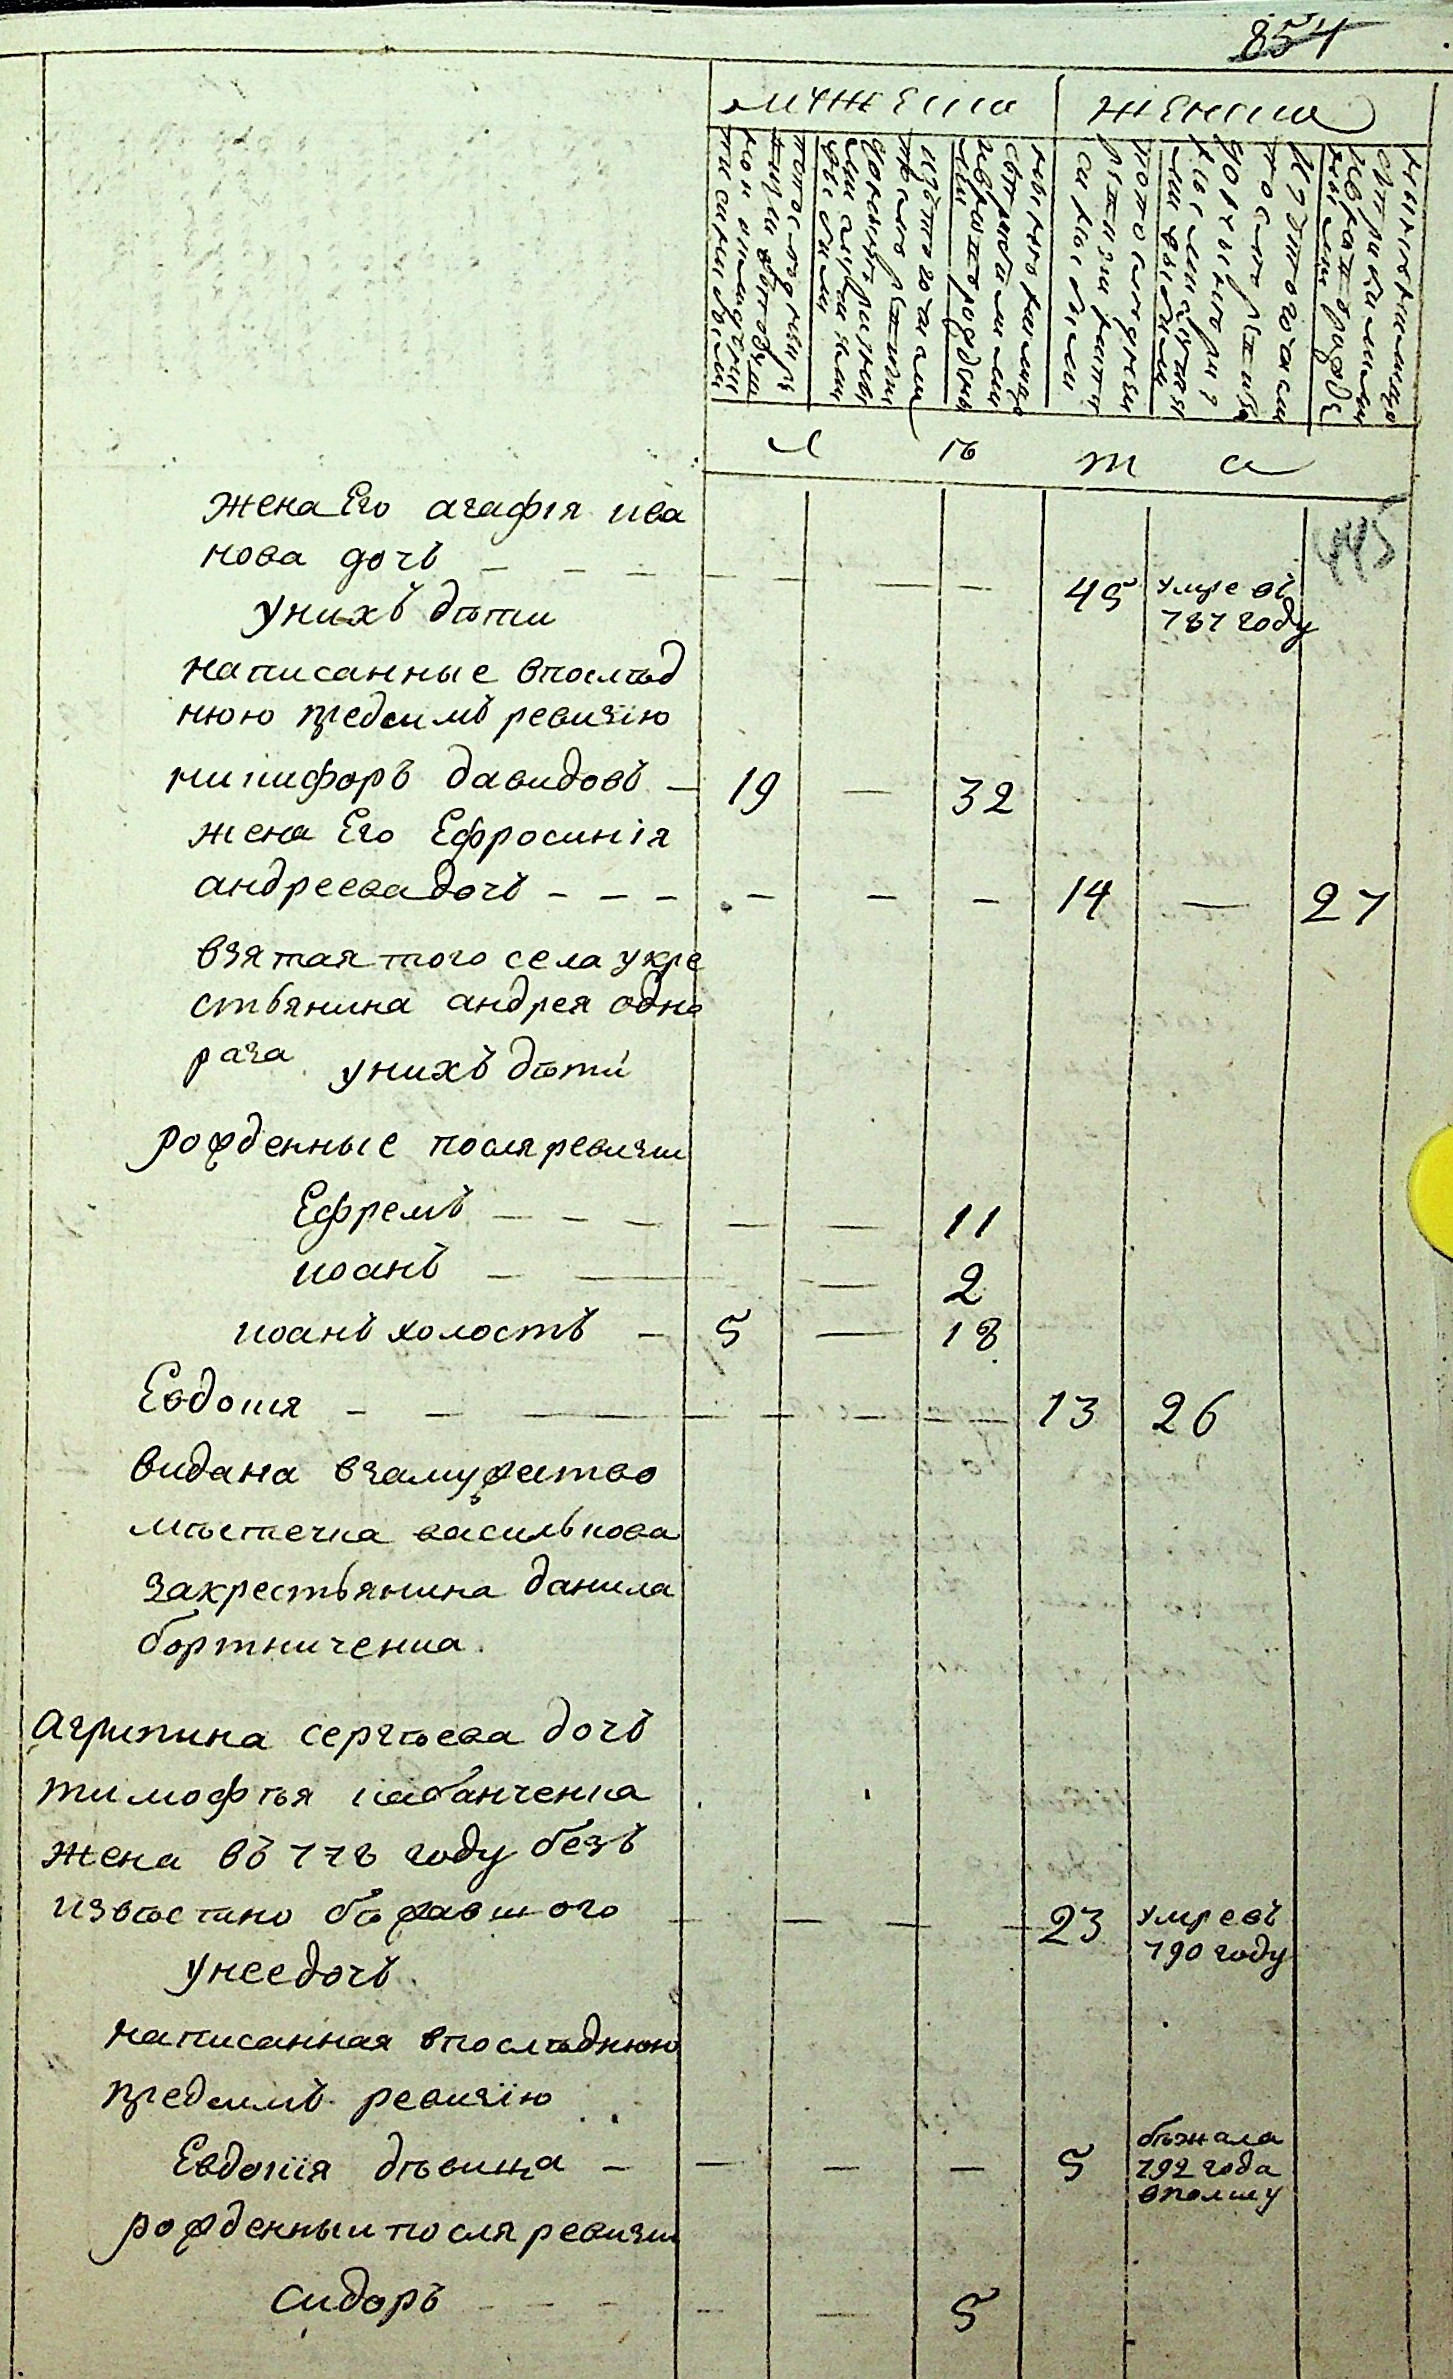 854
мужеска женска
по последней ревизии
изъ того числа после ревизии
ныне на лицо
съ прибылыми и вновь рожден
по последней ревизии
изъ того числа после
ныне на лицо съ прибылыми и
лѣта
445
жена Его агафія ива
нова дочь — — — 45 умре въ
787 году
унихъ дѣти
написанные впослѣд
нюю предсимъ ревизію
никифоръ давидовъ — 19 — 32
жена Его Ефросинія
андреева дочь — — — 14 — 27
взятая того села укре
стьянина андрея одно
рага унихъ дѣти
рожденные после ревизии
Ефремъ — — — 11
иоанъ — — 2
иоанъ холостъ — 5 — 18
Евдокія — — — 13 26
видана взамужество
мѣстечка василькова
закрестьянина данила
бортниченка.
агрипина сергѣева дочь
тимофѣя кабанченка
жена въ 778 году безъ
извѣстно бѣжавшого — — — 23 умре въ
790 году
унеедочь
написанная впослѣднюю
предсимъ ревизію
Евдокія дѣвица — — — — 5 бѣжала
792 года
вполшу
рожденныи после ревизии
сидоръ — — — 5